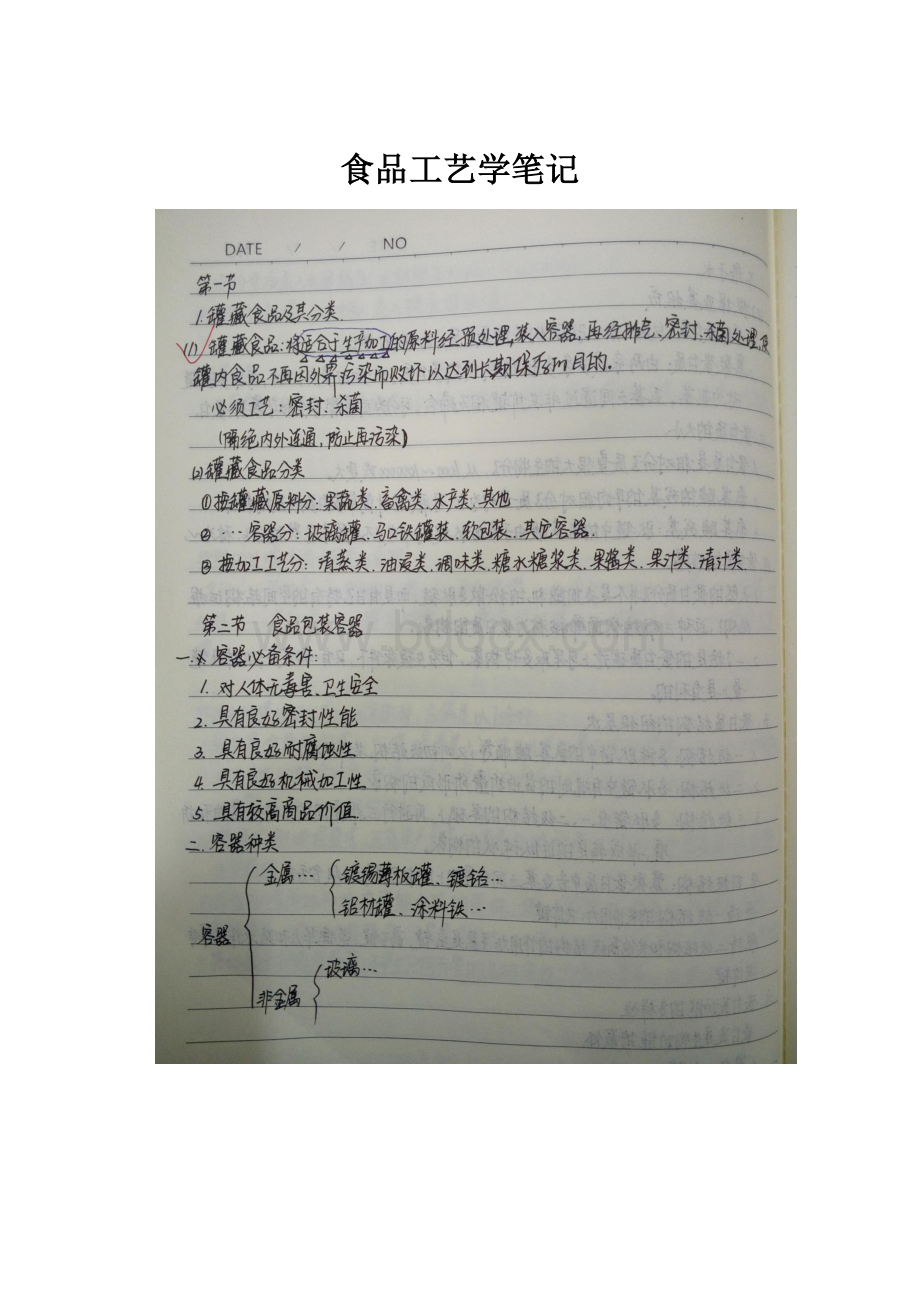 食品工艺学笔记
DATE / / NO
第一节
1.罐藏食品及其分类.
(1) 罐藏食品:将适合于生产加工的原料经预处理,装入容器,再经排气、密封、杀菌处理,使
罐内食品不再因外界污染而败坏以达到长期保存的目的.
必须工艺:密封、杀菌
(隔绝内外连通,防止再污染)
(2)罐藏食品分类
①按罐藏原料分:果蔬类、畜禽类、水产类、其他
② … 容器分:玻璃罐、马口铁罐装、软包装、其它容器.
③按加工工艺分:清蒸类、油浸类、调味类、糖水糖浆类、果酱类、果汁类、清汁类.
第二节 食品包装容器
一.※ 容器必备条件:
1. 对人体无毒害、卫生安全
2. 具有良好密封性能
3. 具有良好耐腐蚀性
4. 具有良好机械加工性
5. 具有较高商品价值.
二.容器种类
金属… 镀锡薄板罐、镀铬…
铝材罐、涂料铁…
容器
玻璃…
非金属